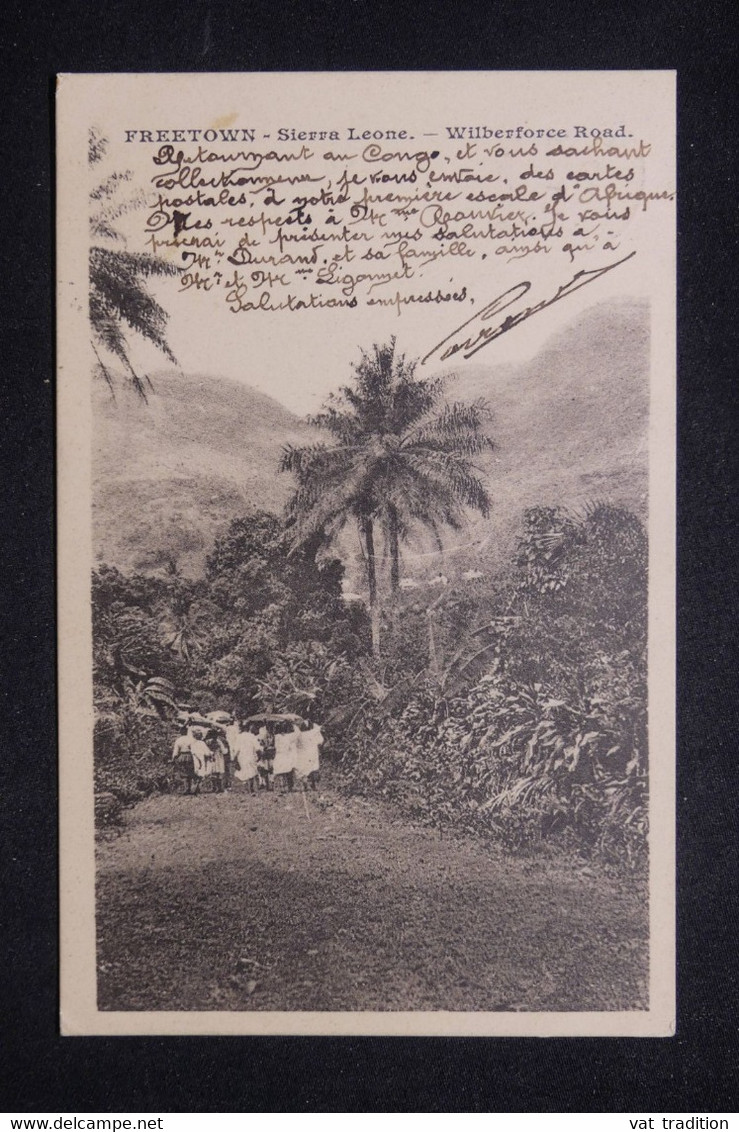 FREETOWN - Sierra Leone. — Wilberforce Road.
Retournant au Congo, et vous sachant
collectionneur, je vous envoie, des cartes
postales, à notre première escale d'Afrique.
Mes respects à Mme Je vous
prierai de présenter mes salutations à
Mr. Durand, et sa famille, ainsi qu'à
Mr et Mme
Salutations empressées,
www.delcampe.net
vat tradition